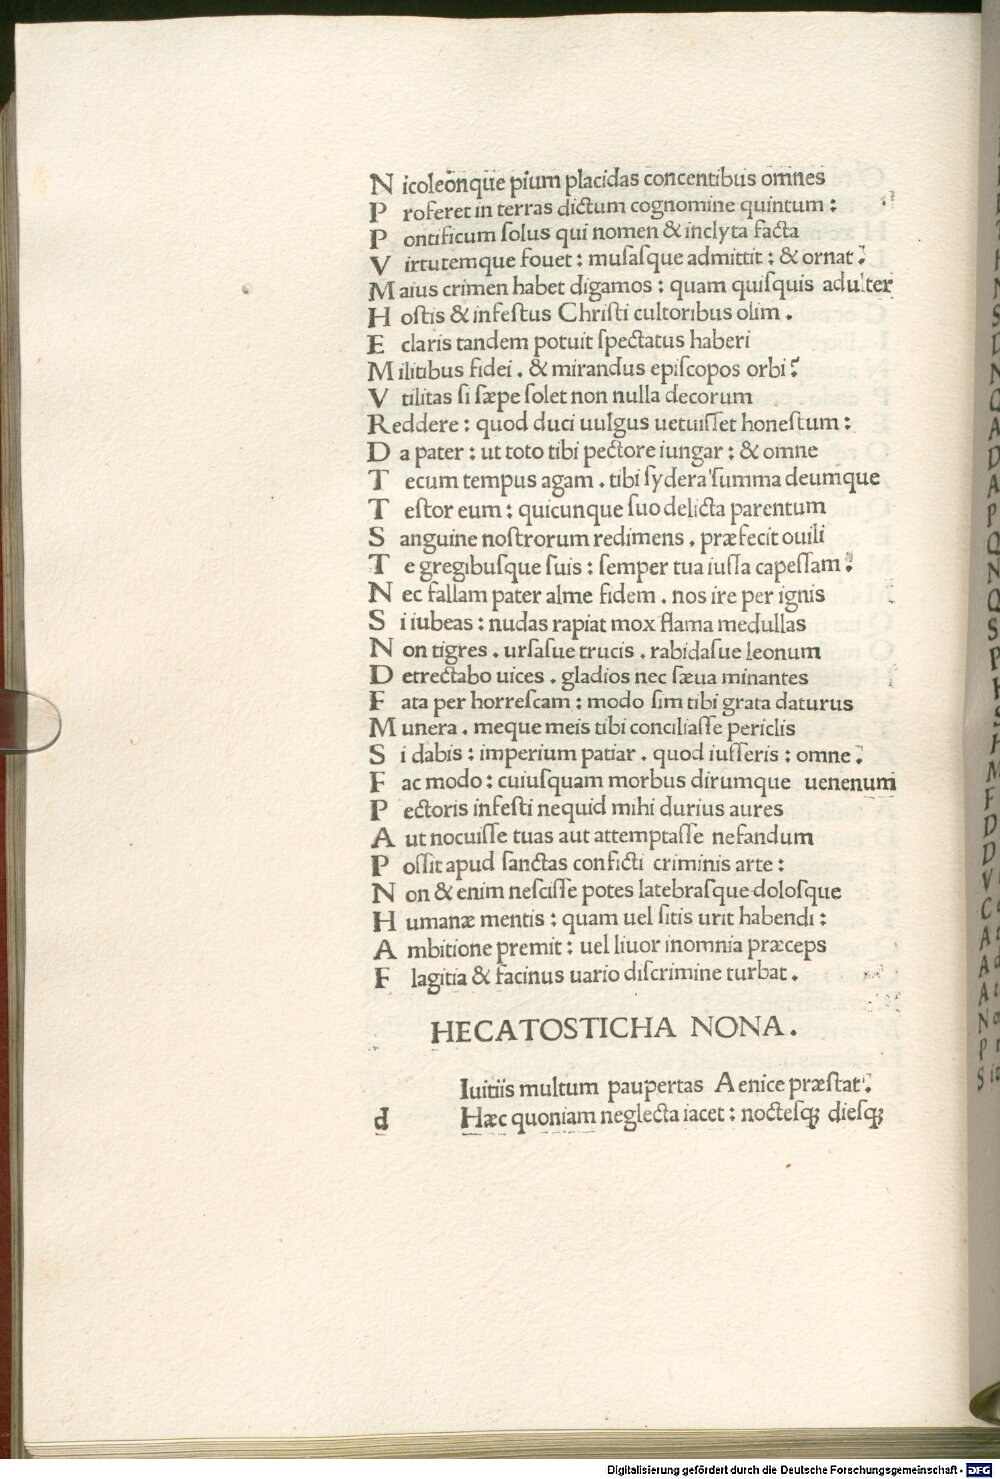 N icoleonque pium placidas concentibus omnes
P roferet in terras dictum cognomine quintum :
P ontificum solus qui nomen & inclyta facta
V irtutemque fouet : musasque admittit : & ornat ?
M aius crimen habet digamos : quam quisquis adulter
H ostis & infestus Christi cultoribus olim .
E claris tandem potuit spectatus haberi
M ilitibus fidei . & mirandus episcopos orbi ?
V tilitas si sæpe solet non nulla decorum
R eddere : quod duci uulgus uetuisset honestum :
D a pater : ut toto tibi pectore iungar : & omne
T ecum tempus agam . tibi sydera summa deumque
T estor eum : quicunque suo delicta parentum
S anguine nostrorum redimens . præfecit ouili
T e gregibusque suis : semper tua iussa capessam ?
N ec fallam pater alme fidem . nos ire per ignis
S i iubeas : nudas rapiat mox flama medullas
N on tigres . ursasue trucis . rabidasue leonum
D etrectabo uices . gladios nec sæua minantes
F ata per horrescam : modo sim tibi grata daturus
M unera . meque meis tibi conciliasse periclis
S i dabis : imperium patiar . quod iusseris : omne ?
F ac modo : cuiusquam morbus dirumque uenenum
P ectoris infesti nequid mihi durius aures
A ut nocuisse tuas aut attemptasse nefandum
P ossit apud sanctas conficti criminis arte :
N on & enim nescisse potes latebrasque dolosque
H umanæ mentis : quam uel sitis urit habendi :
A mbitione premit : uel liuor inomnia præceps
F lagitia & facinus uario discrimine turbat .
HECATOSTICHA NONA .
Iuitiis multum paupertas Aenice præstat ?
d Hæc quoniam neglecta iacet : noctesq; diesq;
Digitalisierung gefördert durch die Deutsche Forschungsgemeinschaft - DFG